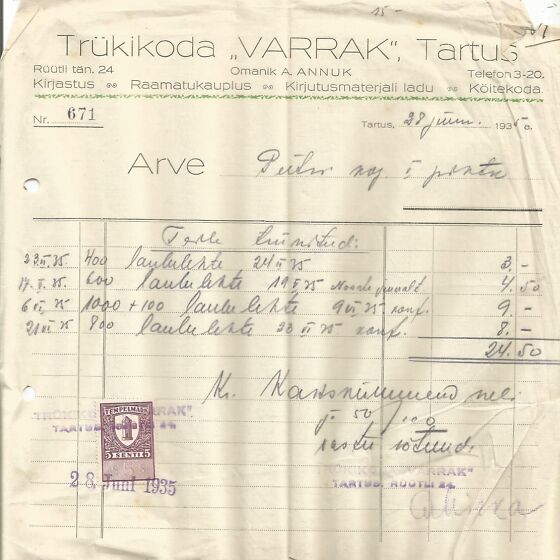 15-
Trükikoda „VARRAK“, Tartus
Rüütli tän. 24 Omanik A. ANNUK Telefon 3-20.
Kirjastus Raamatukauplus Kirjutusmaterjali ladu Köitekoda.
Nr. 671
Tartus, 28 juuni 1935 a.
Arve
Teile trükitud:
400 laululehte 24 II 35 3.-
17. V. 35. 600 laululehte 19 V 35 4.50
6 VI. 35 1000+100 laululehte 9 VI 35 9.-
21 VI 35 800 laululehte 23 VI 35 8.-
24.50
Kr. Kakskümmend neli
ja 50/100
vastu võtnud:
"TRÜKIKODA VARRAK"
TARTUS, RÜÜTLI 24.
TEMPELMARK
5 SENTI 5
28. Juni 1935
"TRÜKIKODA VARRAK"
TARTUS, RÜÜTLI 24.